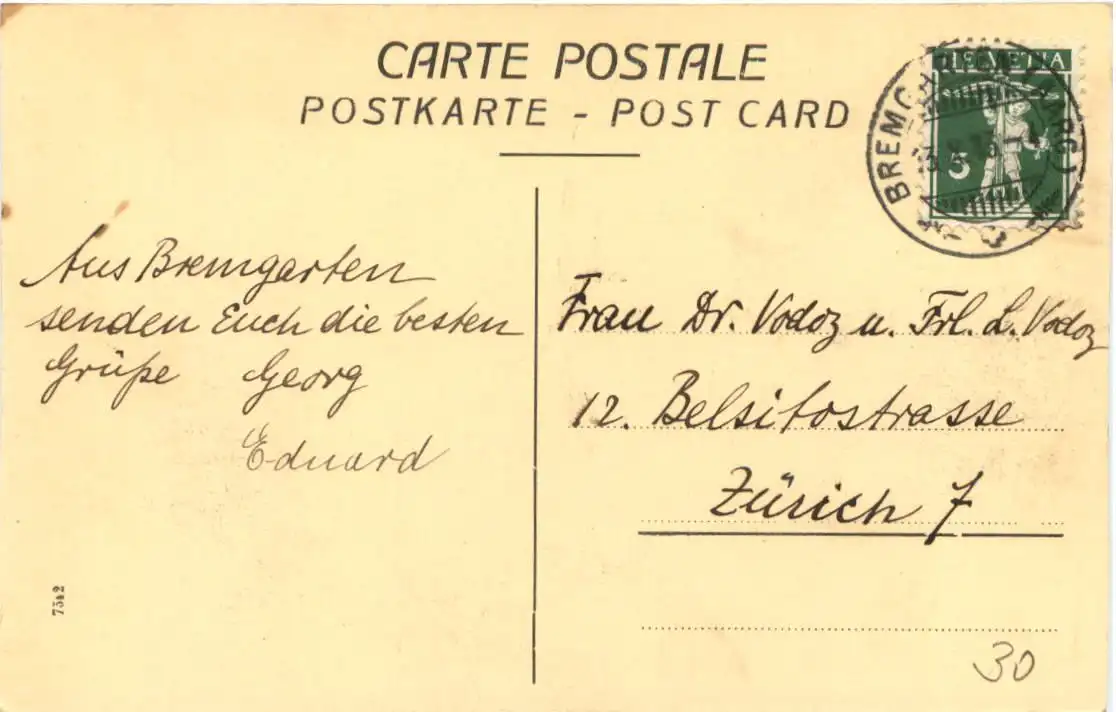 CARTE POSTALE
POSTKARTE - POST CARD
HELVETIA
5
BREMGARTEN (AARG.)
Aus Bremgarten
senden Euch die besten
Grüße Georg
Eduard
Frau Dr. Vodoz u. Frl. L. Vodoz
12. Belsitostrasse
Zürich 7
7542
30